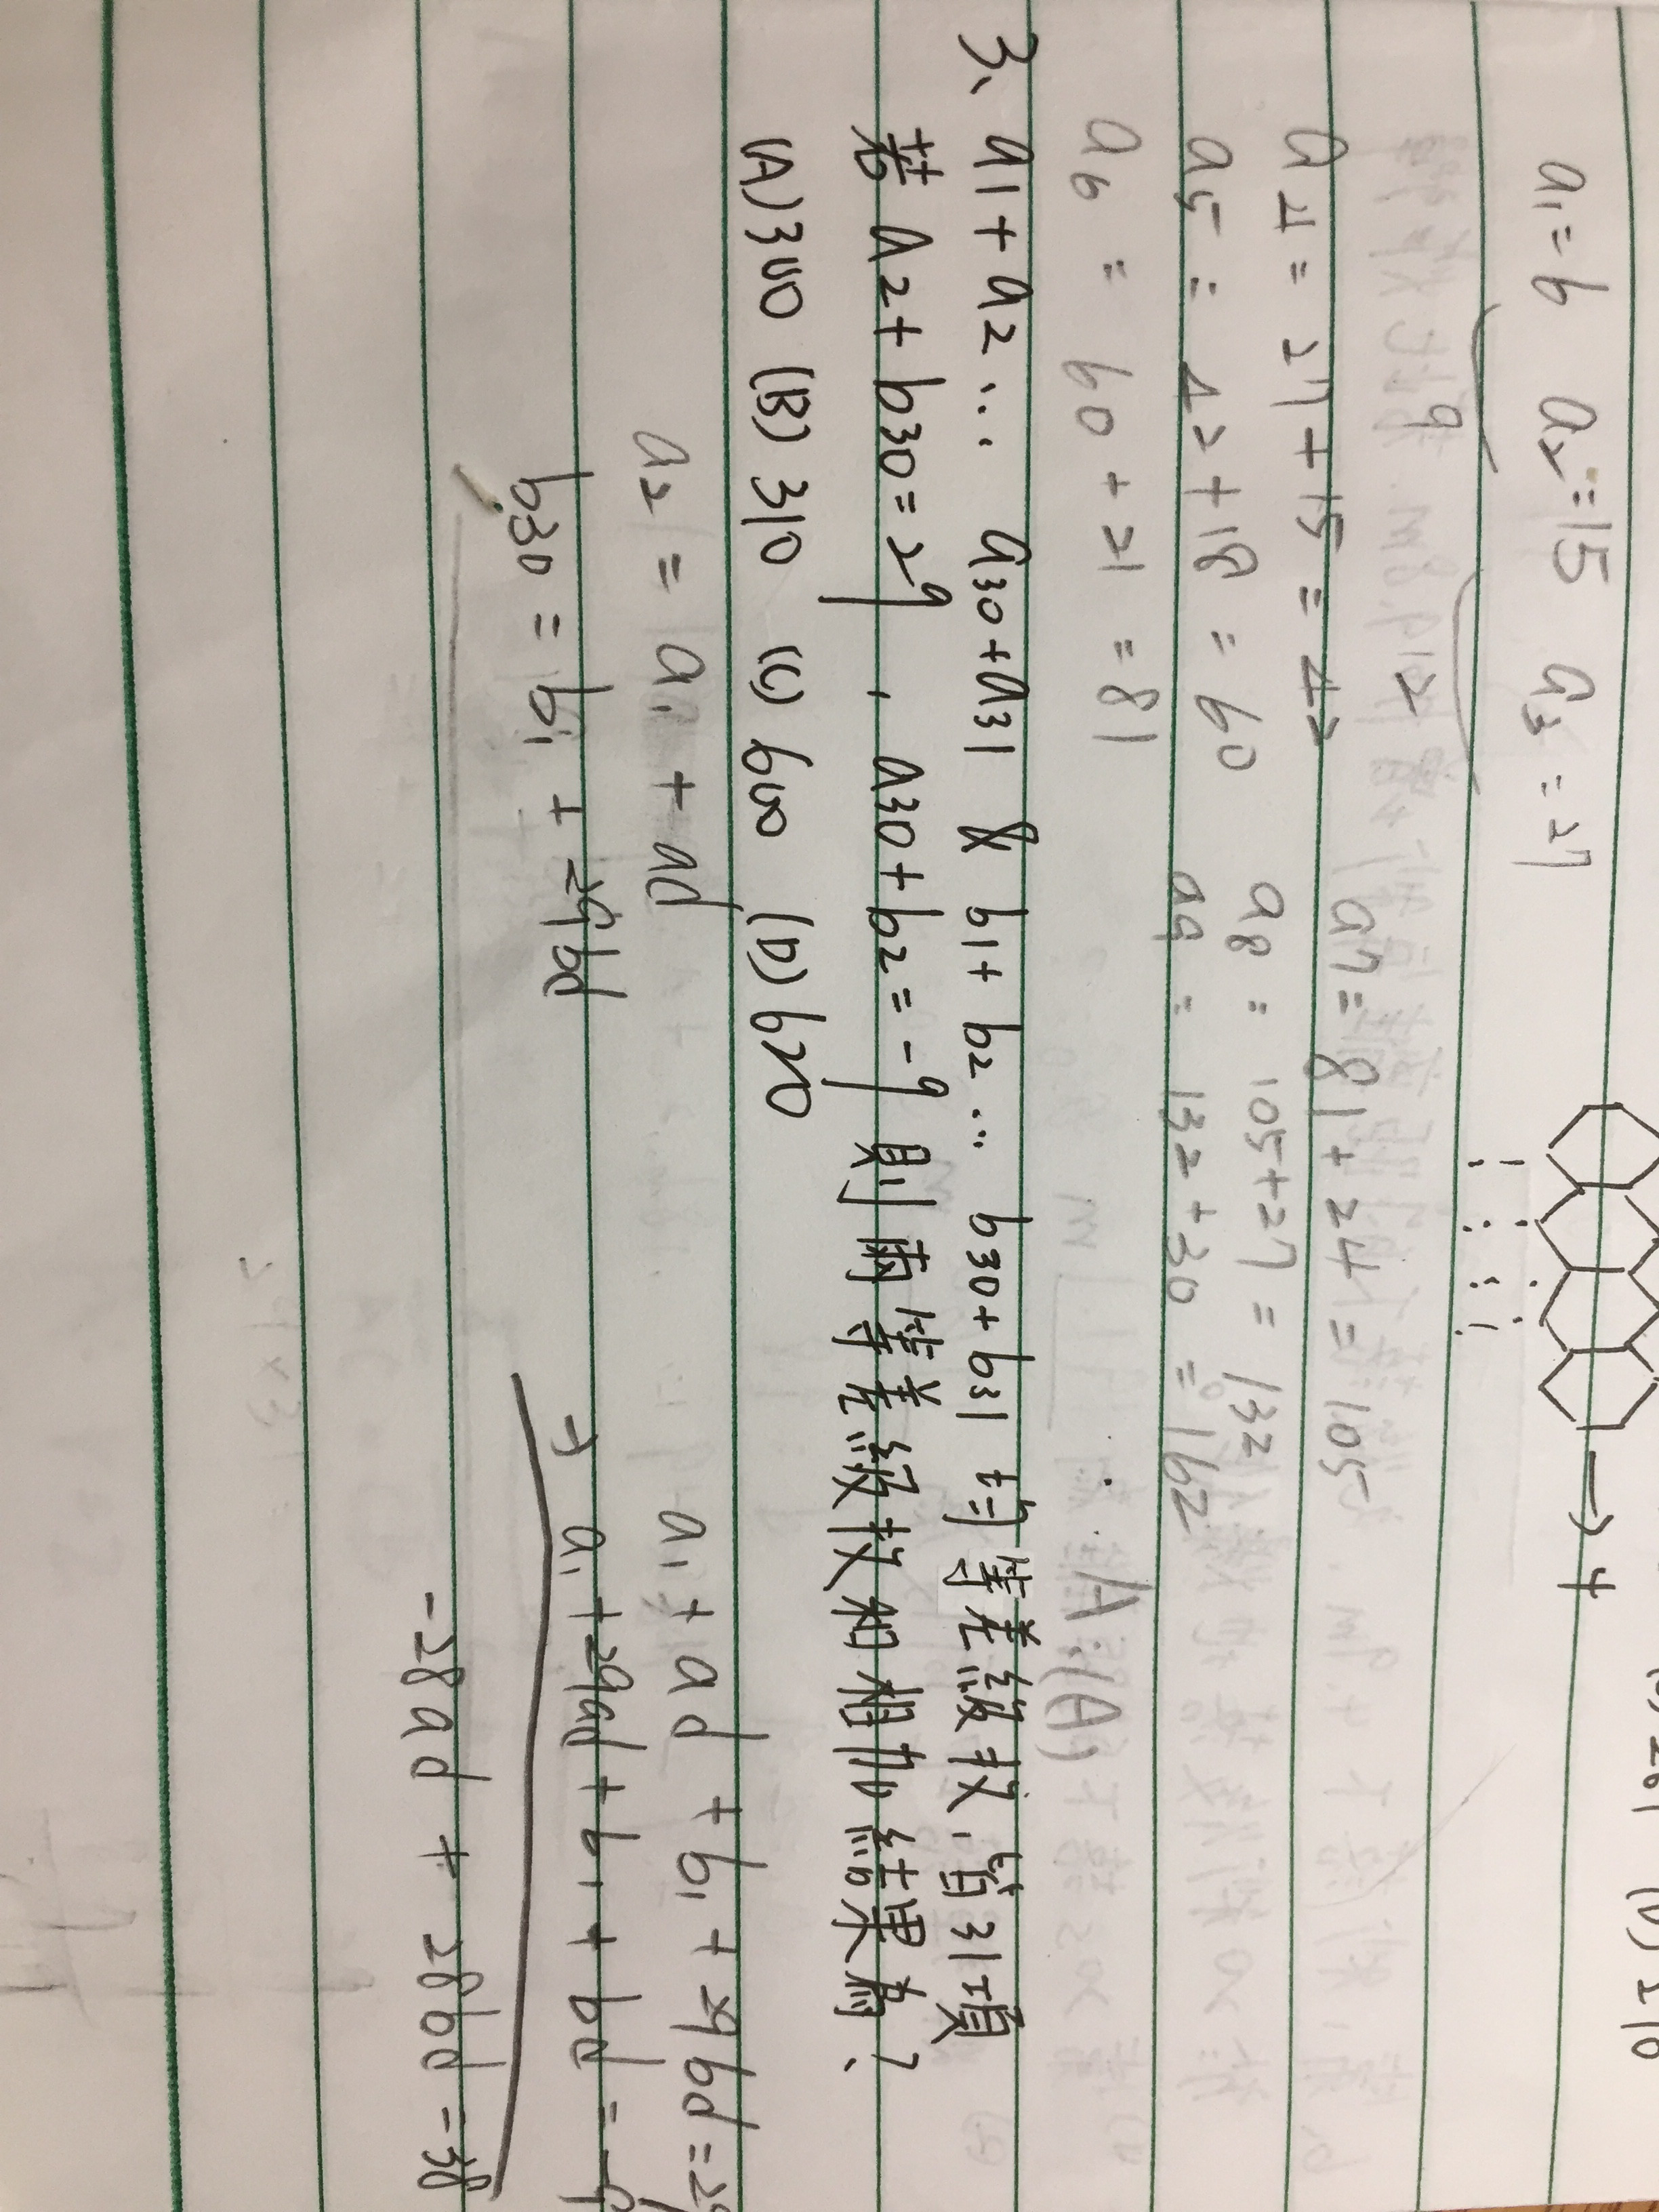 a₁=6 a₂=15 a₃=27
9 12
a4=27+15=42 a7=81+24=105
a5=42+18=60 a8=105+27=132
a6=60+21=81 a9=132+30=162
→4
A:(A)
3、a1+a2… a30+a31 & b1+b2… b30+b31 均等差級數,皆31項
若 a2+b30=29 , a30+b2=-9 則兩等差級數相相加結果為?
(A)300 (B)310 (C)600 (D)620
a₂=a₁+ad
b30=b₁+29bd
a₁+ad+b₁+29bd=29
-) a₁+29ad+b₁+bd=-9
-28ad+28bd=38